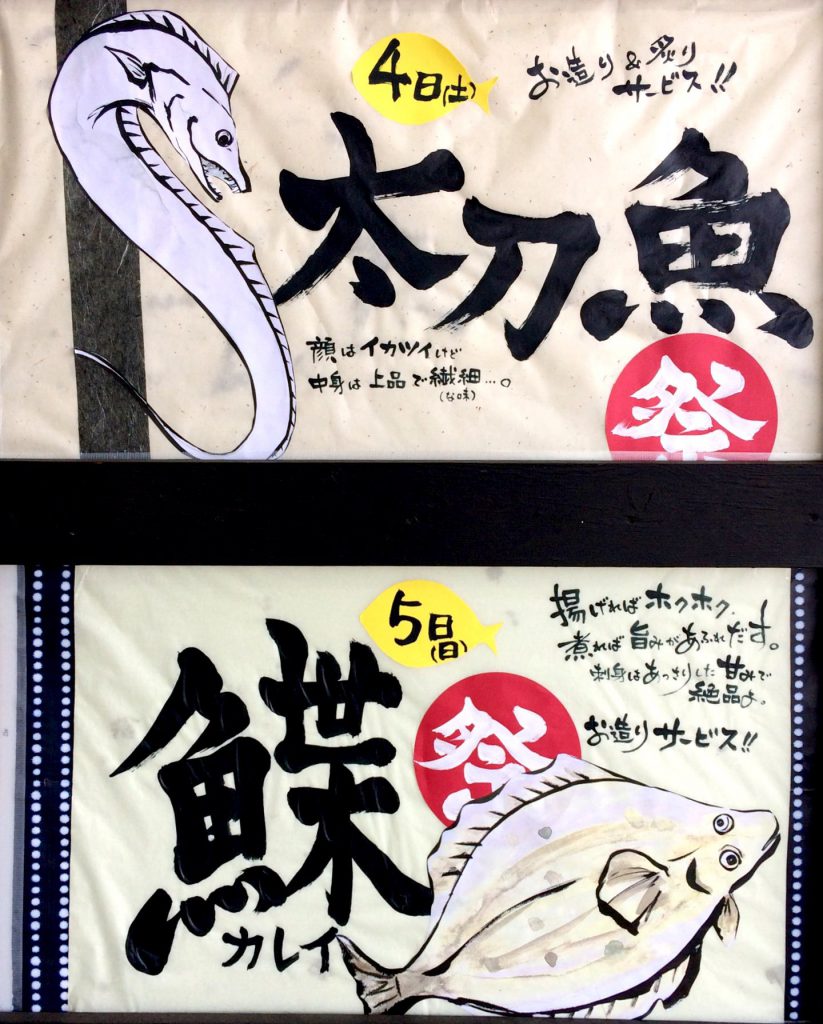 4日(土)
お造り&炙り
サービス!!
太刀魚
顔はイカツイけど
中身は上品で繊細…。
(な味)
祭
5日(日)
揚げればホクホク、
煮れば旨みがあふれだす。
刺身はあっさりした甘みで
絶品よ。
祭
お造りサービス!!
鰈
カレイ